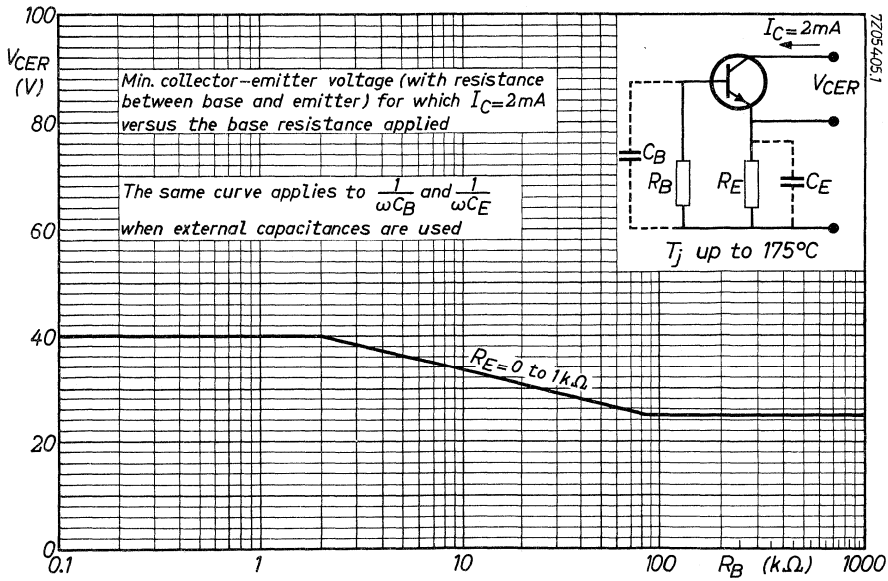 100
V_CER
(V)
80
60
40
20
0
Min. collector–emitter voltage (with resistance
between base and emitter) for which I_C=2mA
versus the base resistance applied
The same curve applies to 1/ωC_B and 1/ωC_E
when external capacitances are used
R_E=0 to 1kΩ
I_C=2mA
V_CER
C_B
R_B
R_E
C_E
T_j up to 175°C
7Z05405.1
0.1
1
10
100
R_B (kΩ)
1000